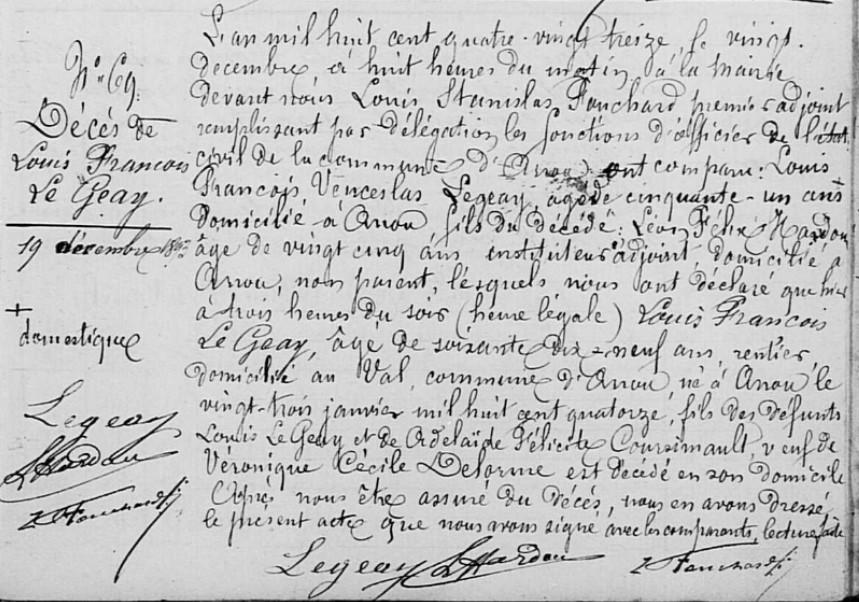 N° 69.
Décés de
Louis François
Le Geay.
19 décembre 1893
+
domestique
Legeay
LHardou
L Fouchard
L'an mil huit cent quatre-vingt treize, le vingt.
décembre, à huit heures du matin, à la Mairie
devant nous Louis Stanislas Fouchard premier adjoint
remplissant par délégation les fonctions d'officier de l'état
civil de la commune d'Arrou, ont comparu: Louis
François Venceslas Legeay, âgé de cinquante-un ans +
domicilié à Arrou, fils du décédé; Léon Félix Hardou
âgé de vingt cinq ans instituteur adjoint, domicilié à
Arrou, non parent, lesquels nous ont déclaré que hier
à trois heures du soir (heure légale) Louis François
Le Geay, âgé de soixante dix-neuf ans, rentier,
domicilié au Val, commune d'Arrou né à Arrou le
vingt-trois janvier mil huit cent quatorze, fils des défunts
Louis Le Geay et de Adélaïde Félicité Coursimault, veuf de
Véronique Cécile Delorme est décédé en son domicile
Après nous être assuré du décés, nous en avons dressé
le présent acte que nous avons signé avec les comparants, lecture faite
Legeay LHardou L Fouchard